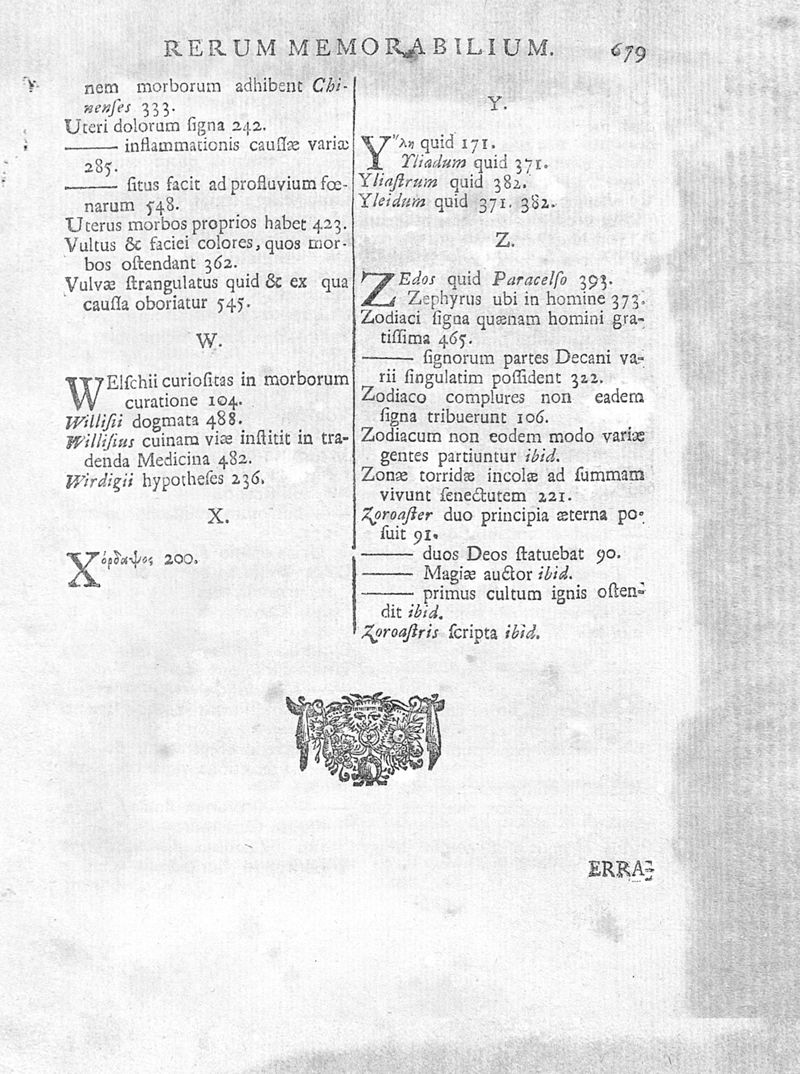 RERUM MEMORABILIUM. 679
nem morborum adhibent Chi-
nenſes 333.
Uteri dolorum ſigna 242.
——— inflammationis cauſſæ variæ
285.
——— ſitus facit ad profluvium fœ-
narum 548.
Uterus morbos proprios habet 423.
Vultus & faciei colores, quos mor-
bos oſtendant 362.
Vulvæ ſtrangulatus quid & ex qua
cauſſa oboriatur 545.
W.
WElſchii curioſitas in morborum
curatione 104.
Williſii dogmata 488.
Williſius cuinam viæ inſtitit in tra-
denda Medicina 482.
Wirdigii hypotheſes 236.
X.
Χορδαψος 200.
Y.
Y῞λη quid 171.
Yliadum quid 371.
Yliaſtrum quid 382.
Yleidum quid 371. 382.
Z.
ZEdos quid Paracelſo 393.
Zephyrus ubi in homine 373.
Zodiaci ſigna quænam homini gra-
tiſſima 465.
——— ſignorum partes Decani va-
rii ſingulatim poſſident 322.
Zodiaco complures non eadem
ſigna tribuerunt 106.
Zodiacum non eodem modo variæ
gentes partiuntur ibid.
Zonæ torridæ incolæ ad ſummam
vivunt ſenectutem 221.
Zoroaſter duo principia æterna po-
ſuit 91.
——— duos Deos ſtatuebat 90.
——— Magiæ auctor ibid.
——— primus cultum ignis oſten-
dit ibid.
Zoroaſtris ſcripta ibid.
ERRA-